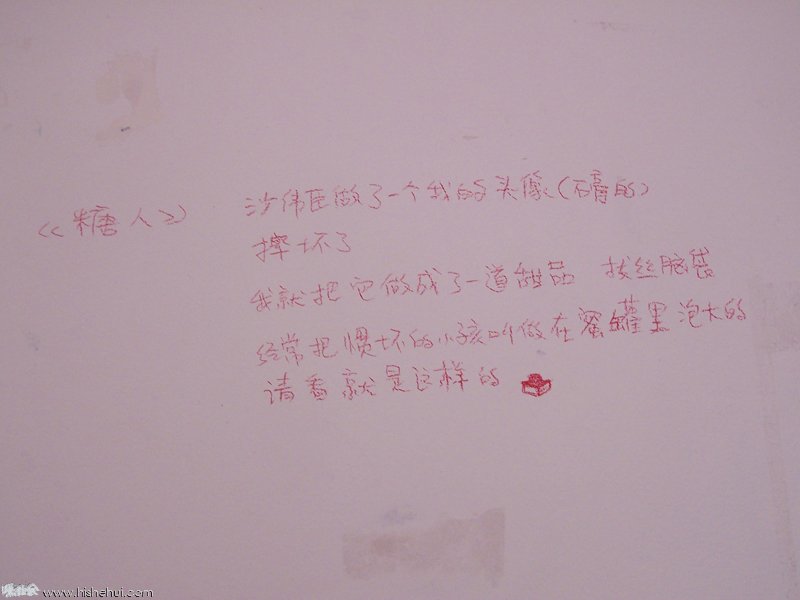 《糖人》
沙伟臣做了一个我的头像(石膏的)
摔坏了
我就把它做成了一道甜品 拔丝脑袋
经常把惯坏的小孩叫做在蜜罐里泡大的
请看就是这样的
www.hishehui.com